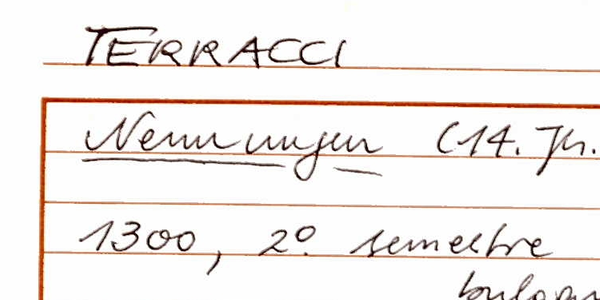 TERRACCI
Nennungen (14. Jh.
1300, 2º semestre